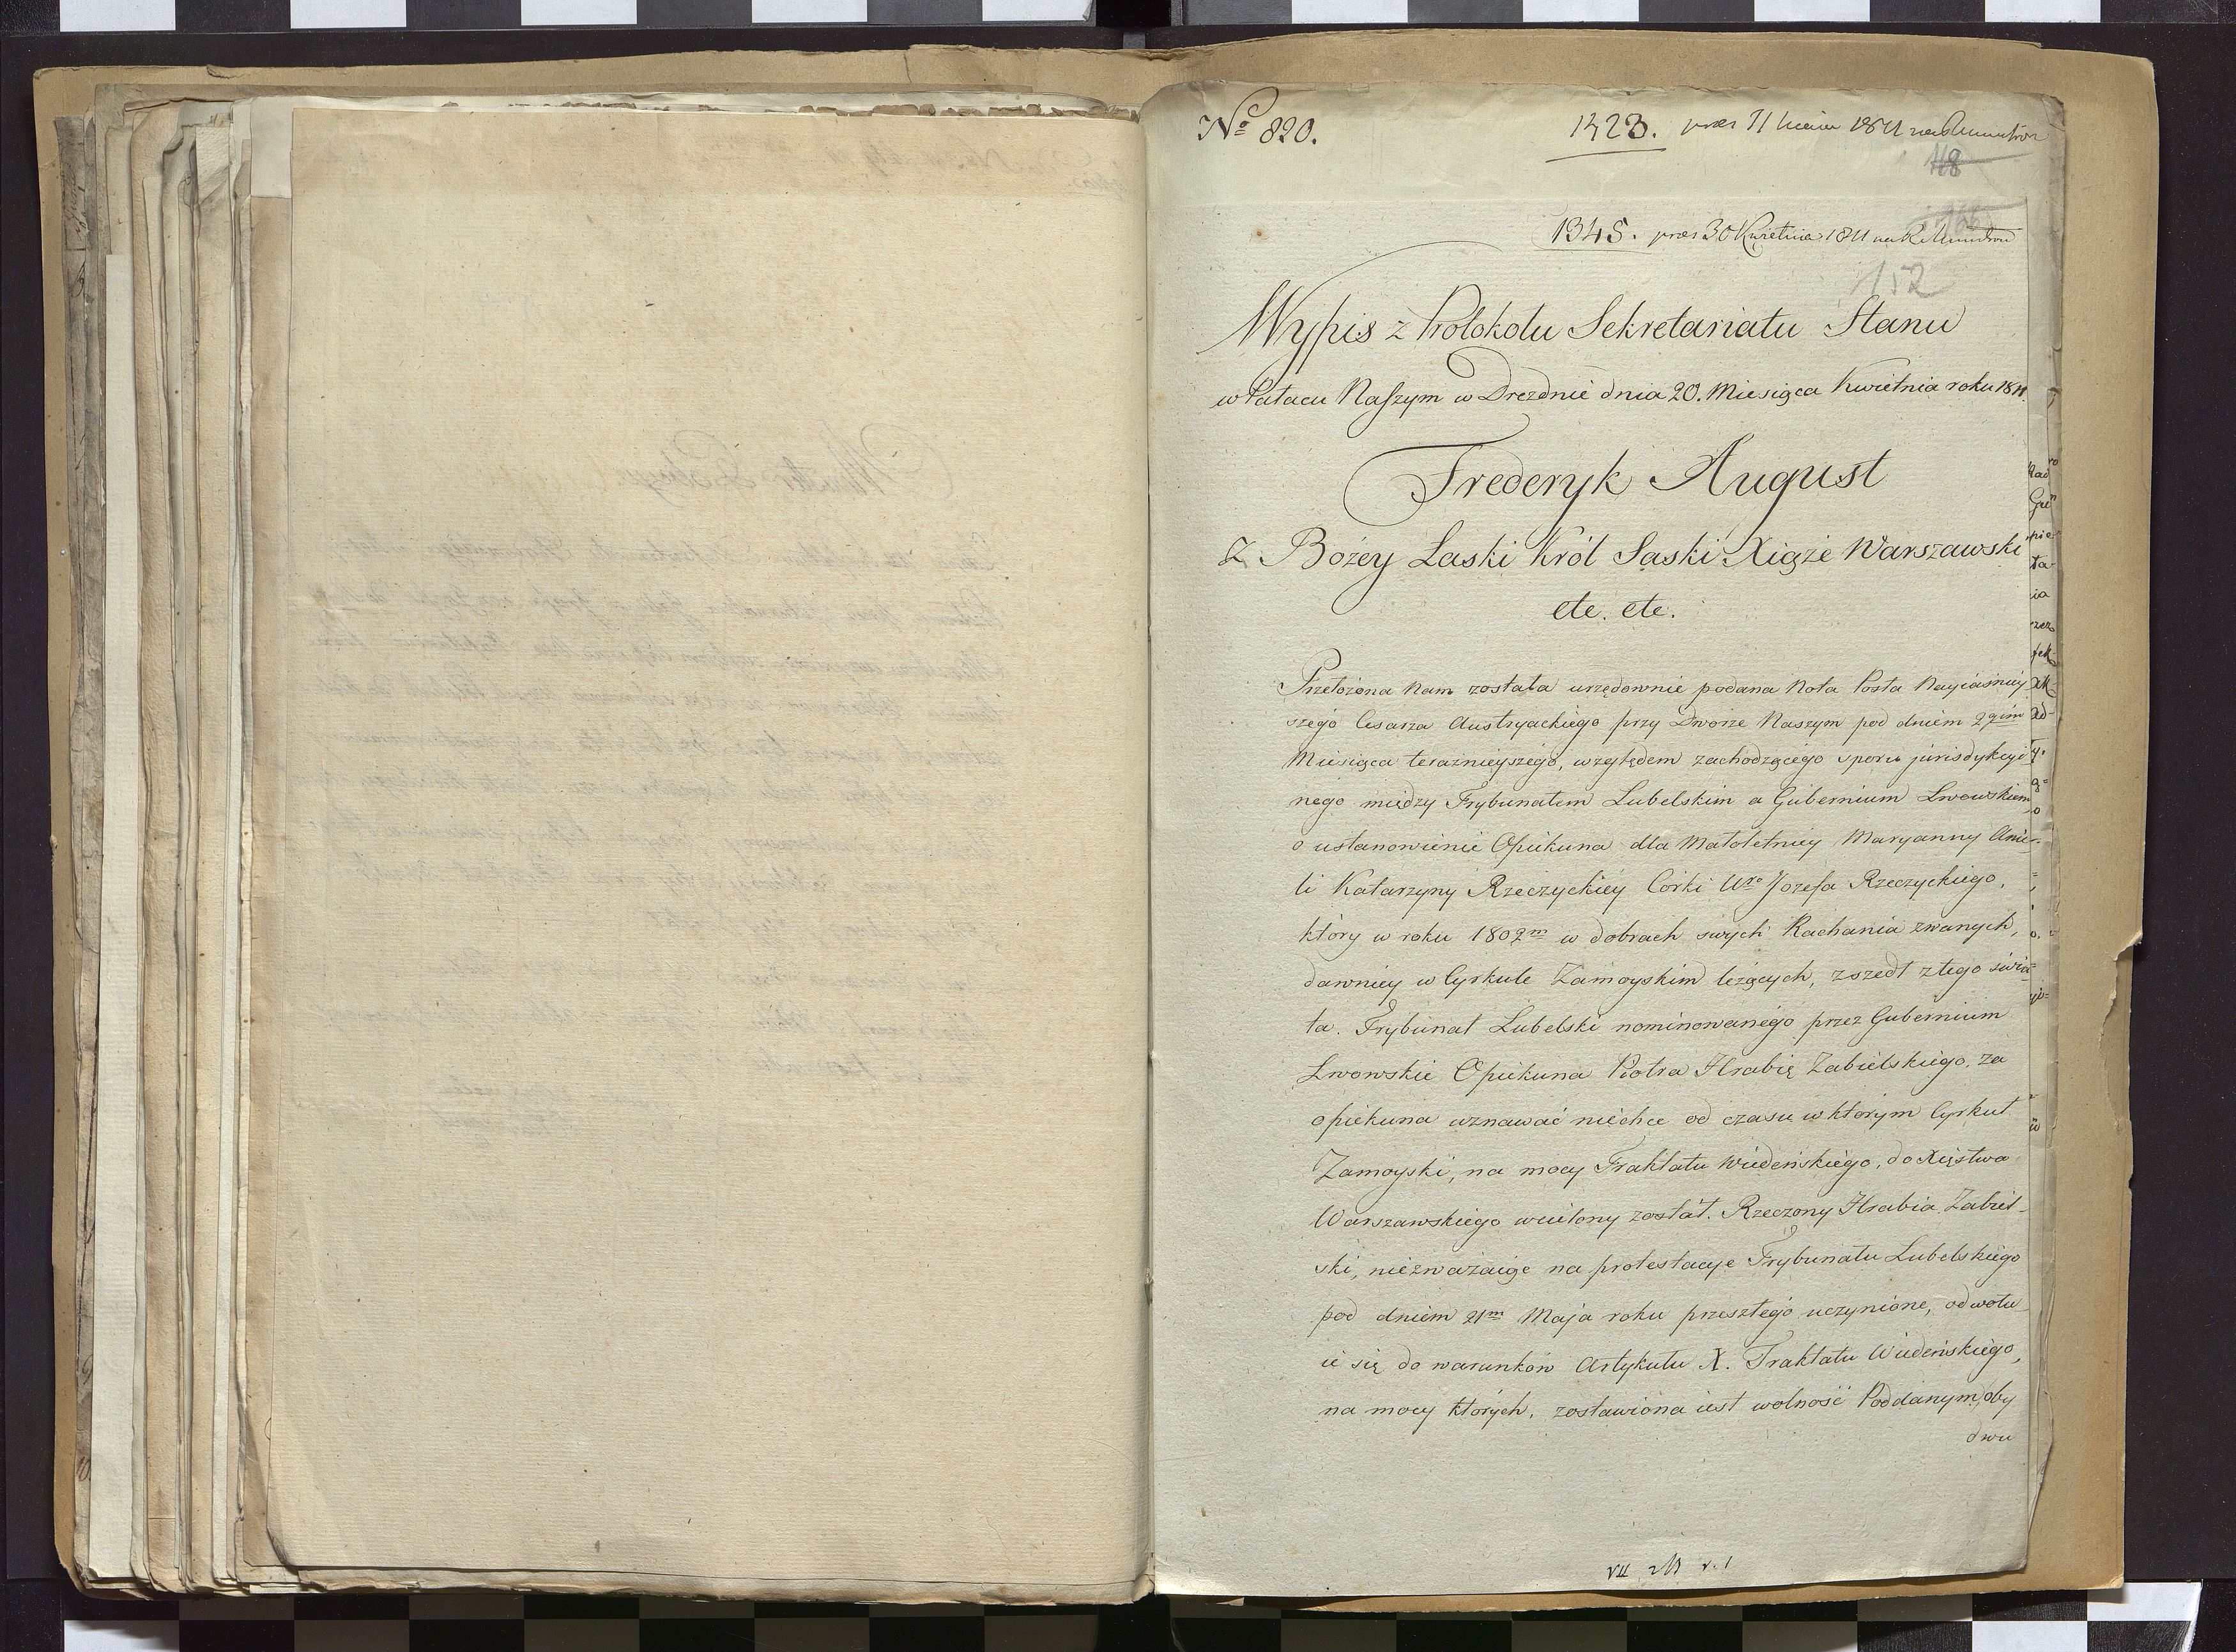 No 820.
1423.
118
1345. prez 30 Kwietnia 1811 na R.
152
Wypis z Protokolu Sekretariatu Stanu
w Pałacu Naszym w Dreznie dnia 20. Miesiąca Kwietnia roku 1811.
Frederyk August
Z Bożey Łaski Król Saski Xiąże Warszawski
etc. etc.
Przełożona Nam została urzędownie podana Nota Posła Nayiaśniey
szego Cesarza Austryackiego przy Dworze Naszym pod dniem 2gim
Miesiąca teraźnieyszego, względem zachodzącego sporu jurisdykcyi
nego między Trybunałem Lubelskim a Gubernium Lwowskiem
o ustanowienie Opiekuna dla Małoletniey Maryanny Anie-
li Katarzyny Rzeczyckiey Córki Uro Jozefa Rzeczyckiego,
który w roku 1802m w dobrach swych Rachania zwanych,
dawniey w Cyrkule Zamoyskim leżących, zszedł z tego świa-
ta. Trybunał Lubelski nominowanego przez Gubernium
Lwowskie Opiekuna Piotra Hrabię Zabielskiego, za
opiekuna uznawać niechce od czasu w ktorym Cyrkuł
Zamoyski, na mocy Traktatu Wiedeńskiego, do Xięstwa
Warszawskiego wcielony został. Rzeczony Hrabia Zabiel-
ski, niezważaiąc na protestacye Trybunału Lubelskiego
pod dniem 21m Maja roku przeszłego uczynione, odwołu
ie się do warunków Artykułu X. Traktatu Wiedeńskiego,
na mocy których, zostawiona iest wolność Poddanym oby
dwu